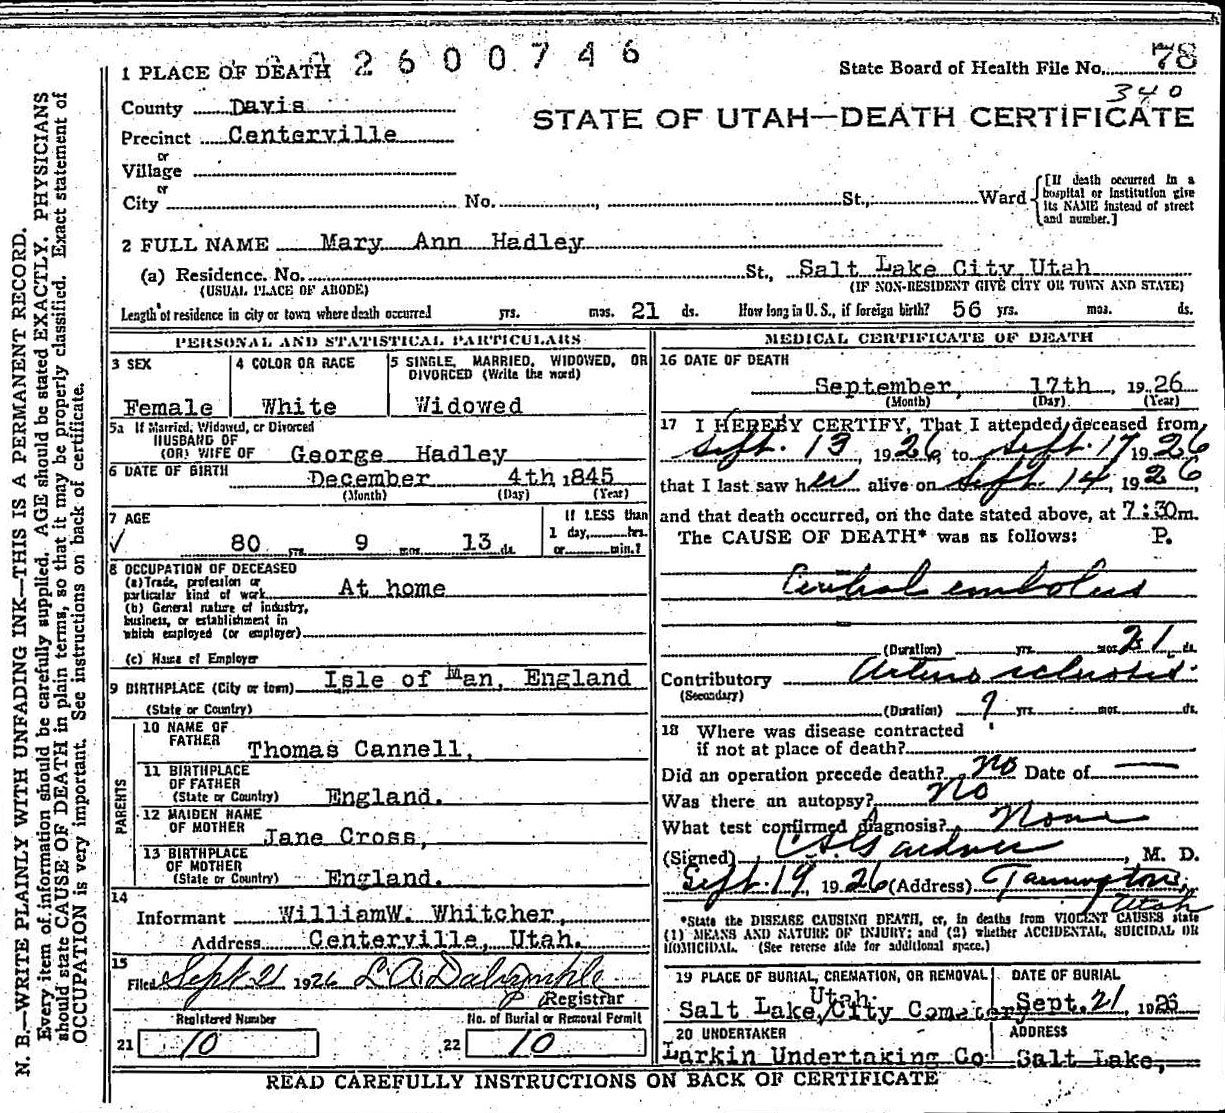 N. B.—WRITE PLAINLY WITH UNFADING INK—THIS IS A PERMANENT RECORD.
Every item of information should be carefully supplied. AGE should be stated EXACTLY. PHYSICIANS
should state CAUSE OF DEATH in plain terms, so that it may be properly classified. Exact statement of
OCCUPATION is very important. See instructions on back of certificate.
2600746
1 PLACE OF DEATH
State Board of Health File No. 78
340
County Davis
STATE OF UTAH—DEATH CERTIFICATE
Precinct Centerville
or
Village
or
City No. , St., Ward
[If death occurred in a
hospital or institution give
its NAME instead of street
and number.]
2 FULL NAME Mary Ann Hadley
(a) Residence. No. St., Salt Lake City Utah
(USUAL PLACE OF ABODE) (IF NON-RESIDENT GIVE CITY OR TOWN AND STATE)
Length of residence in city or town where death occurred yrs. mos. 21 ds. How long in U. S., if foreign birth? 56 yrs. mos. ds.
PERSONAL AND STATISTICAL PARTICULARS
3 SEX
Female
4 COLOR OR RACE
White
5 SINGLE, MARRIED, WIDOWED, OR
DIVORCED (Write the word)
Widowed
5a If Married, Widowed, or Divorced
HUSBAND OF
(OR) WIFE OF George Hadley
6 DATE OF BIRTH
December 4th 1845
(Month) (Day) (Year)
7 AGE
80 yrs. 9 mos. 13 ds.
If LESS than
1 day, hrs.
or min.?
8 OCCUPATION OF DECEASED
(a) Trade, profession or
particular kind of work At home
(b) General nature of industry,
business, or establishment in
which employed (or employer)
(c) Name of Employer
9 BIRTHPLACE (City or town) Isle of Man, England
(State or Country)
PARENTS
10 NAME OF
FATHER Thomas Cannell,
11 BIRTHPLACE
OF FATHER
(State or Country) England.
12 MAIDEN NAME
OF MOTHER Jane Cross,
13 BIRTHPLACE
OF MOTHER
(State or Country) England.
14
Informant WilliamW. Whitcher,
Address Centerville, Utah.
15
Filed Sept 21 1926 L. A. Dalrymple
Registrar
Registered Number
21 10
No. of Burial or Removal Permit
22 10
MEDICAL CERTIFICATE OF DEATH
16 DATE OF DEATH
September, 17th, 1926
(Month) (Day) (Year)
17 I HEREBY CERTIFY, That I attended deceased from
Sept. 13, 1926, to Sept. 17 1926
that I last saw her alive on Sept. 14, 1926
and that death occurred, on the date stated above, at 7:30m.
The CAUSE OF DEATH* was as follows: P.
Cerebral embolus
(Duration) yrs. mos. 21 ds.
Contributory Arterio sclerosis.
(Secondary)
(Duration) ? yrs. mos. ds.
18 Where was disease contracted
if not at place of death?
Did an operation precede death? No Date of —
Was there an autopsy? No
What test confirmed diagnosis? None
(Signed) Gardner, M. D.
Sept. 19, 1926 (Address) Farmington,
Utah
*State the DISEASE CAUSING DEATH, or, in deaths from VIOLENT CAUSES state
(1) MEANS AND NATURE OF INJURY; and (2) whether ACCIDENTAL, SUICIDAL OR
HOMICIDAL. (See reverse side for additional space.)
19 PLACE OF BURIAL, CREMATION, OR REMOVAL
Utah
Salt Lake/City Cemetery
DATE OF BURIAL
Sept. 21, 1926
20 UNDERTAKER
Larkin Undertaking Co
ADDRESS
Salt Lake,
READ CAREFULLY INSTRUCTIONS ON BACK OF CERTIFICATE